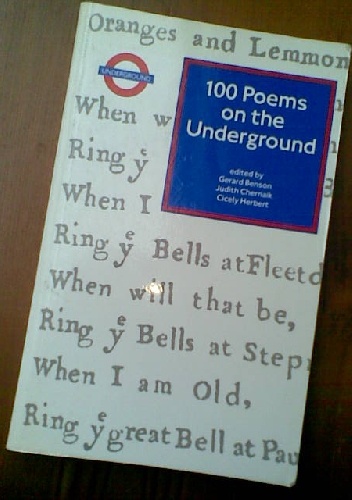 Oranges and Lemmon
UNDERGROUND
100 Poems
on the
Underground
edited by
Gerard Benson
Judith Chernaik
Cicely Herbert
When w
Ring yͤ
When I
Ring yͤ Bells at Fleetd
When will that be,
Ring yͤ Bells at Step
When I am Old,
Ring yͤ great Bell at Pau